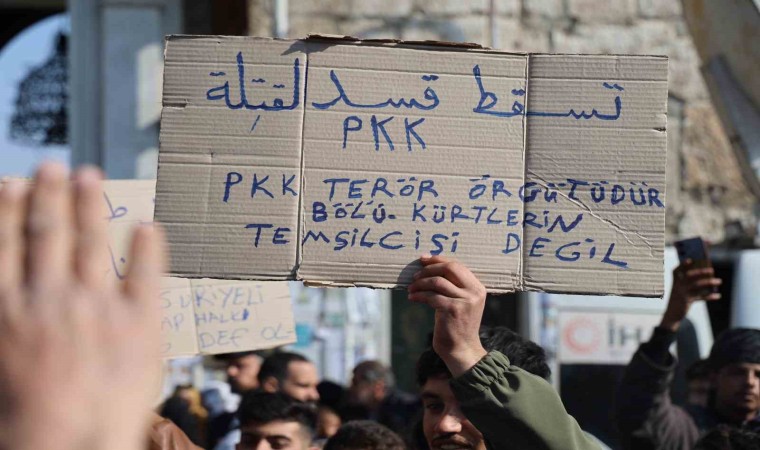 تسقط قسد لقتلة
PKK
PKK TERÖR ÖRGÜTÜDÜR
BÖLÜ. KÜRTLERİN
TEMSİLCİSİ DEĞİL
RİYELİ
AP HALKI
DEF OL
İH